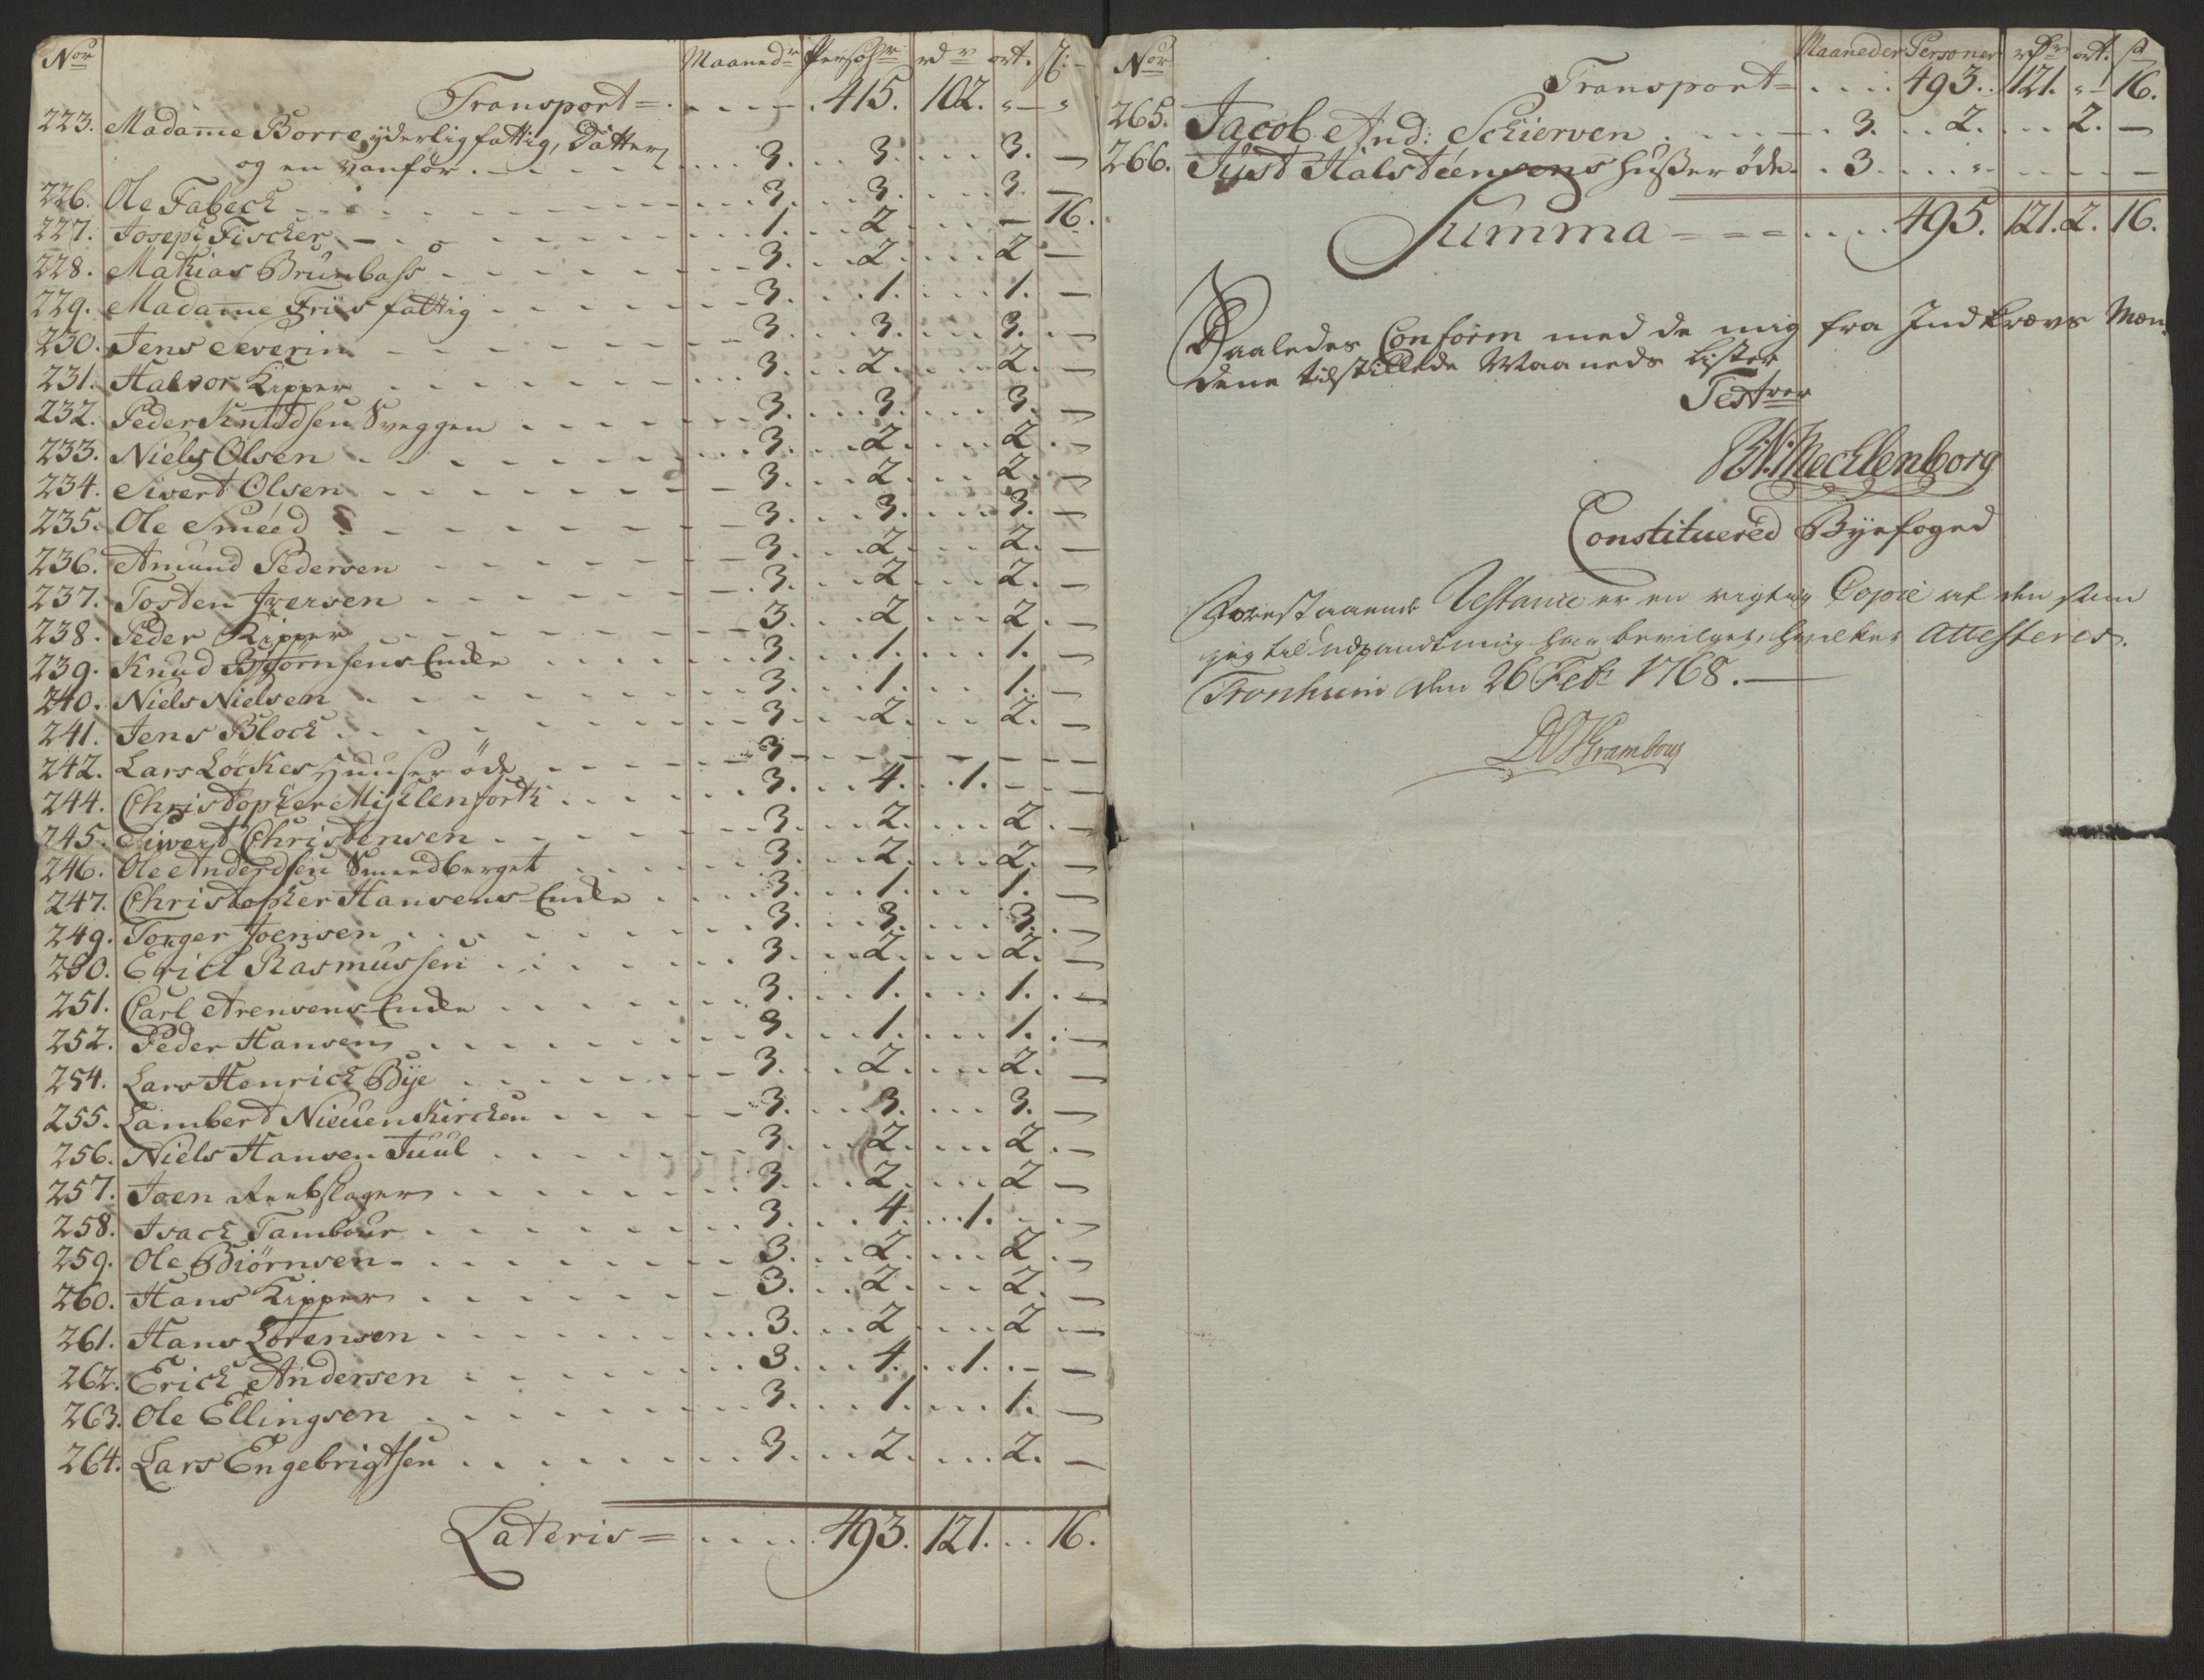 Nor Maanedr Persohr rdr ort. sl:
Transport = . . . . . 415. 102. " — "
223. Madame Borre yderlig fattig, Datter
og en vanför . . . . . 3. . . 3. . . . 3. —
226. Ole Fabeck . . . . . 3. . . 3. . . . 3. —
227. Joseph Fischer . . . . . 1. . . 2 . . . — 16.
228. Mathias Brunbass . . . . . 3. . . 2. . . . 2 —
229. Madame Friis fattig . . . . . 3. . . 1. . . . 1. —
230. Jens Severin . . . . . 3. . . 3. . . . 3. —
231. Halvor Kipper . . . . . 3. . . 2. . . . 2. —
232. Peder Knudsen Sveggen . . . . . 3. . . 3. . . . 3. —
233. Niels Olsen . . . . . 3. . . 2. . . . 2. —
234. Sivert Olsen . . . . . 3. . . 2. . . . 2. —
235. Ole Smeed . . . . . 3. . . 3. . . . 3. —
236. Amund Pedersen . . . . . 3. . . 2. . . . 2. —
237. Tosten Iversen . . . . . 3. . . 2. . . . 2. —
238. Peder Kipper . . . . . 3. . . 2. . . . 2. —
239. Knud Biörnsens Encke . . . . . 3. . . 1. . . . 1. —
240. Niels Nielsen . . . . . 3. . . 1. . . . 1. —
241. Jens Block . . . . . 3. . . 2. . . . 2. —
242. Lars Löckes Huuser öde . . . . . 3 — — — — — —
244. Christopher Michlenforth . . . . . 3. . . 4. . . 1. — —
245. Siwert Christensen . . . . . 3. . . 2. . . . 2. —
246. Ole Anderdsen Smeedberget . . . . . 3. . . 2. . . . 2. —
247. Christopher Hansens Encke . . . . . 3. . . 1. . . . 1. —
249. Torger Joensen . . . . . 3. . . 3. . . . 3. —
250. Erich Rasmussen . . . . . 3. . . 2. . . . 2. —
251. Carl Arensens Encke . . . . . 3. . . 1. . . . 1. —
252. Peder Hansen . . . . . 3. . . 1. . . . 1. —
254. Lars Henrich Bye . . . . . 3. . . 2. . . . 2. —
255. Lambert Nieuenkirchen . . . . . 3. . . 3. . . . 3. —
256. Niels Hansen Juul . . . . . 3. . . 2. . . . 2. —
257. Joen Reebslager . . . . . 3. . . 2. . . . 2 —
258. Isach Tambour . . . . . 3. . . 4. . . 1. — —
259. Ole Biörnsen . . . . . 3. . . 2. . . . 2. —
260. Hans Kipper . . . . . 3. . . 2. . . . 2. —
261. Hans Lorensen . . . . . 3. . . 2 . . . 2 —
262. Erich Andersen . . . . . 3. . . 4. . . 1. — —
263. Ole Ellingsen . . . . . 3. . . 1. . . . 1. —
264. Lars Engebrigtsen . . . . . 3. . . 2. . . . 2. —
Lateris = . . . . 493. 121. . . 16.
Nor Maaneder Personer rdr ort. sl
Transport = . . . . 493. . 121. " — 16.
265. Jacob And: Schierven . . . . . 3. . . 2. . . . 2. —
266. Just Halsteensens Huser öde . . 3. . . . " . . . — —
Summa = = = . . . . 495. 121. 2. 16.
Saaledes Conform med de mig fra Indkrævs Mæn-
dene tilstillede Maaneds Lister
Testerer
Mecklenborg
Constituered Byefoged
Forestaaende Restance er en rigtig Copie af den som
jeg til Udpandtning har bevilget, hvilket Attesteres.
Tronhiem den 26 Feb: 1768. —